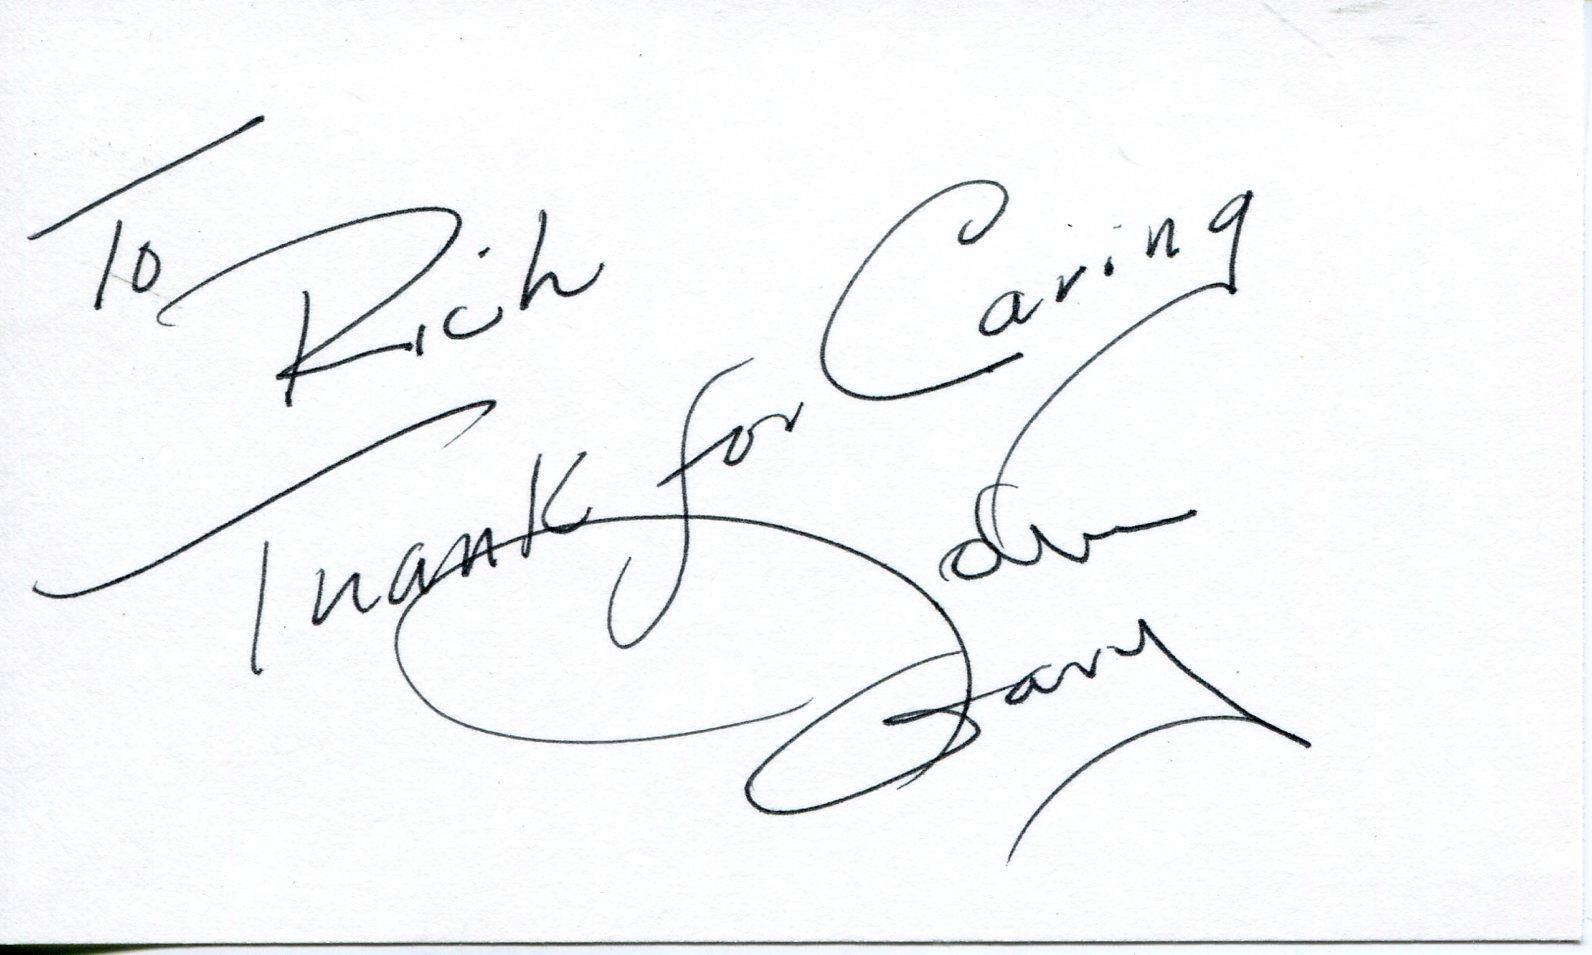 To Rich
Thank for Caring
John
Gary